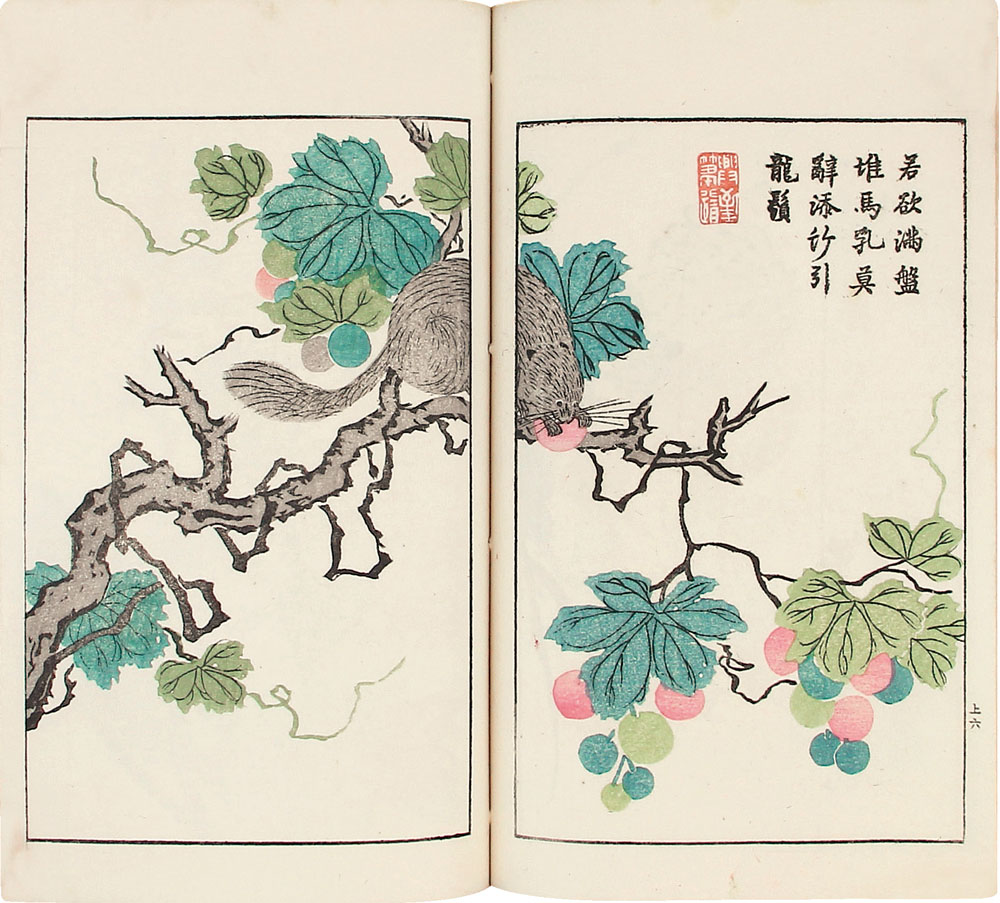 若欲滿盤
堆馬乳莫
辭添竹引
龍鬚
上六